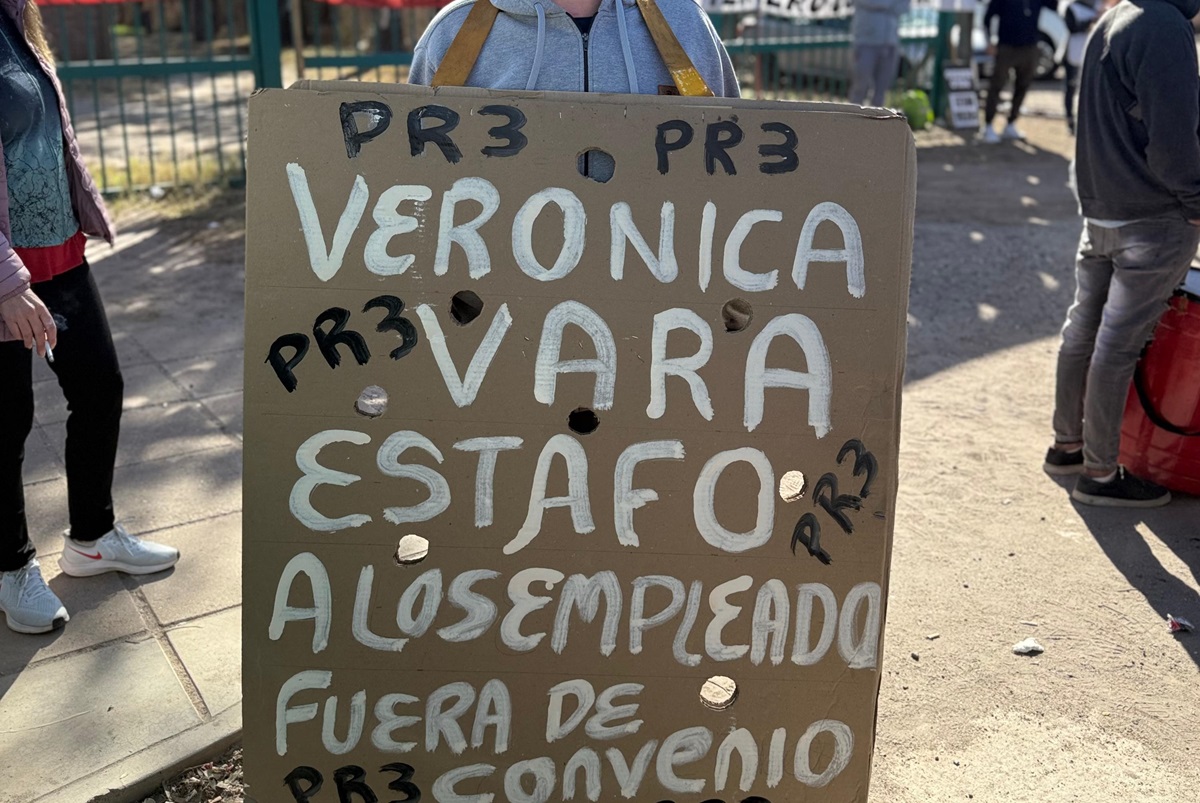 PR3 PR3
VERONICA
PR3 VARA
ESTAFO PR3
A LOS EMPLEADO
FUERA DE
PR3 CONVENIO